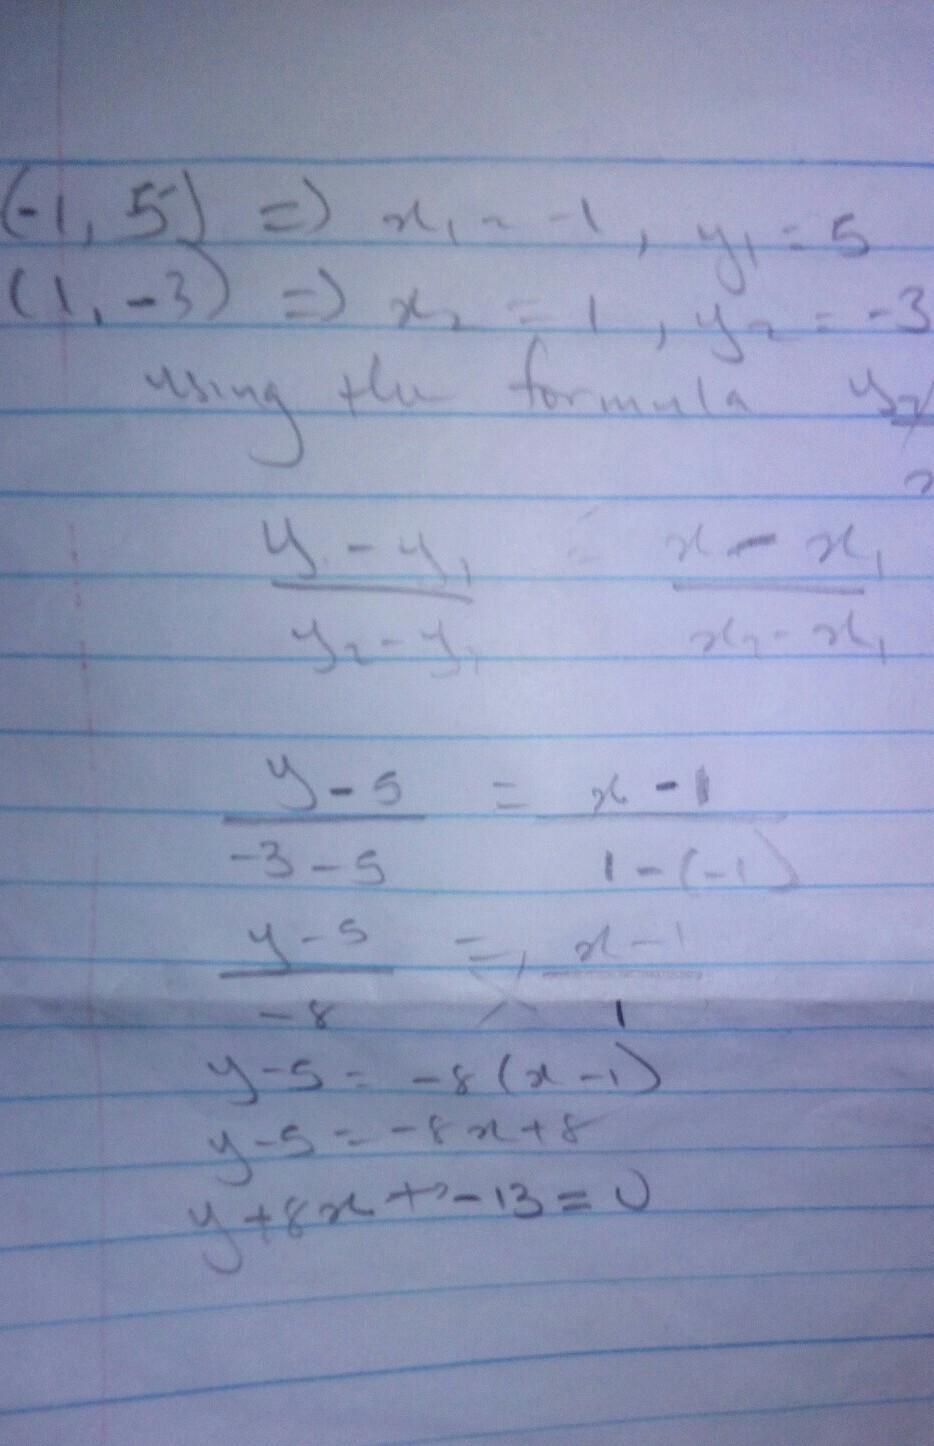 (-1, 5) => x₁ = -1, y₁ = 5
(1, -3) => x₂ = 1, y₂ = -3
using the formula y₂
y - y₁ = x - x₁
y₂ - y₁ x₂ - x₁
y - 5 = x - 1
-3 - 5 1 - (-1)
y - 5 = x - 1
-8 1
y - 5 = -8(x - 1)
y - 5 = -8x + 8
y + 8x - 13 = 0